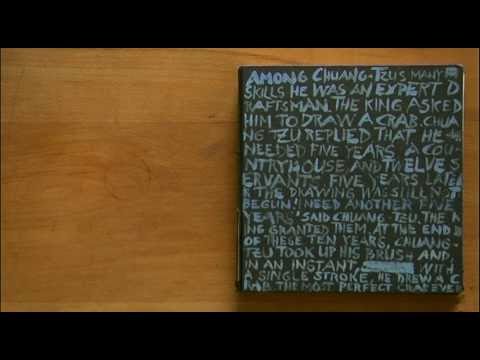 AMONG CHUANG-TZU'S MANY
SKILLS HE WAS AN EXPERT D
RAFTSMAN. THE KING ASKED
HIM TO DRAW A CRAB. CHUA
NG TZU REPLIED THAT HE
NEEDED FIVE YEARS, A COU
NTRYHOUSE, AND TWELVE S
ERVANTS. FIVE YEARS LATE
R THE DRAWING WAS STILL N-T
BEGUN. 'I NEED ANOTHER FIVE
YEARS' SAID CHUANG-TZU. THE
NG GRANTED THEM. AT THE END
OF THESE TEN YEARS, CHUANG-
TZU TOOK UP HIS BRUSH AND,
IN AN INSTANT, WITH
A SINGLE STROKE, HE DREW A C
RAB, THE MOST PERFECT CRAB EVER